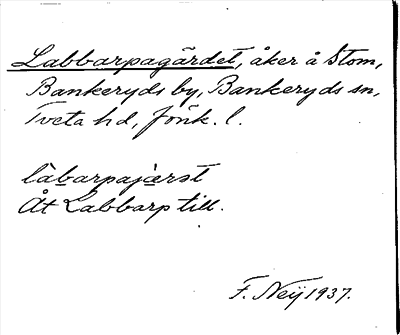 Labbarpagärdet, åker å Stom,
Bankeryds by, Bankeryds sn,
Tveta hd, Jönk. l.
làbarpajæ̀rst
Åt Labbarp till.
F. Neij 1937.